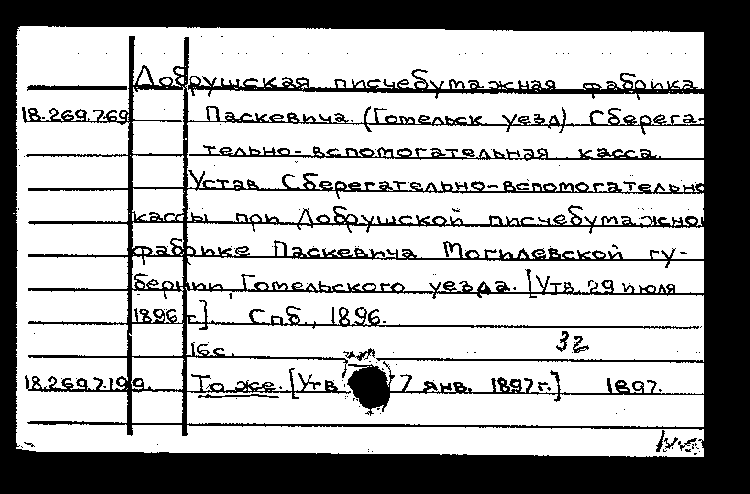 Добрушская писчебумажная фабрика
18.269.7.69 Паскевича (Гомельск уезд) Сберега-
тельно-вспомогательная касса.
Устав Сберегательно-вспомогательно
кассы при Добрушской писчебумажной
фабрике Паскевича Могилевской гу-
бернии, Гомельского уезда. [Утв. 29 июля
1896 г.] Спб., 1896.
16с. 32
18.269.7.199. То же. [Утв 7 янв. 1897г.] 1897.